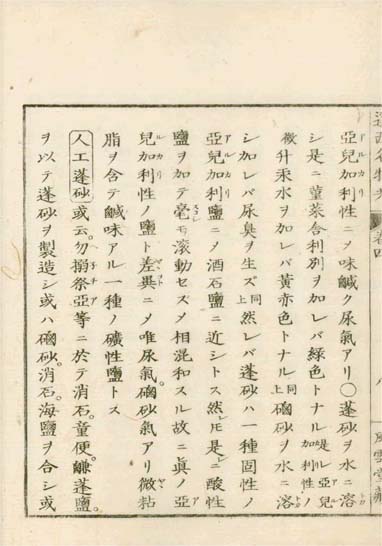 亞兒加利性ニメ味鹹ク尿氣アリ〇蓬砂ヲ水ニ溶
シ是ニ菫菜舎利別ヲ加レバ緑色トナル是レ亞兒加利性ノ
微升汞水ヲ加レバ黄赤色トナル同上磠砂ヲ水ニ溶
シ加レバ尿臭ヲ生ズ同上然レバ蓬砂ハ一種固性ノ
亞兒加利鹽ニメ酒石鹽ニ近シトス然𪜈是レニ酸性
鹽ヲ加テ毫モ滾動セズメ相混和スル故ニ眞ノ亞
兒加利性ノ鹽ト差異ニメ唯尿氣磠砂氣アリ微粘
脂ヲ含テ鹹味アル一種ノ礦性鹽トス
人工蓬砂 或云勿搦祭亞等ニ於テ消石。童便。鹻蓬鹽。
ヲ以テ蓬砂ヲ製造シ或ハ磠砂。消石。海鹽ヲ合シ或